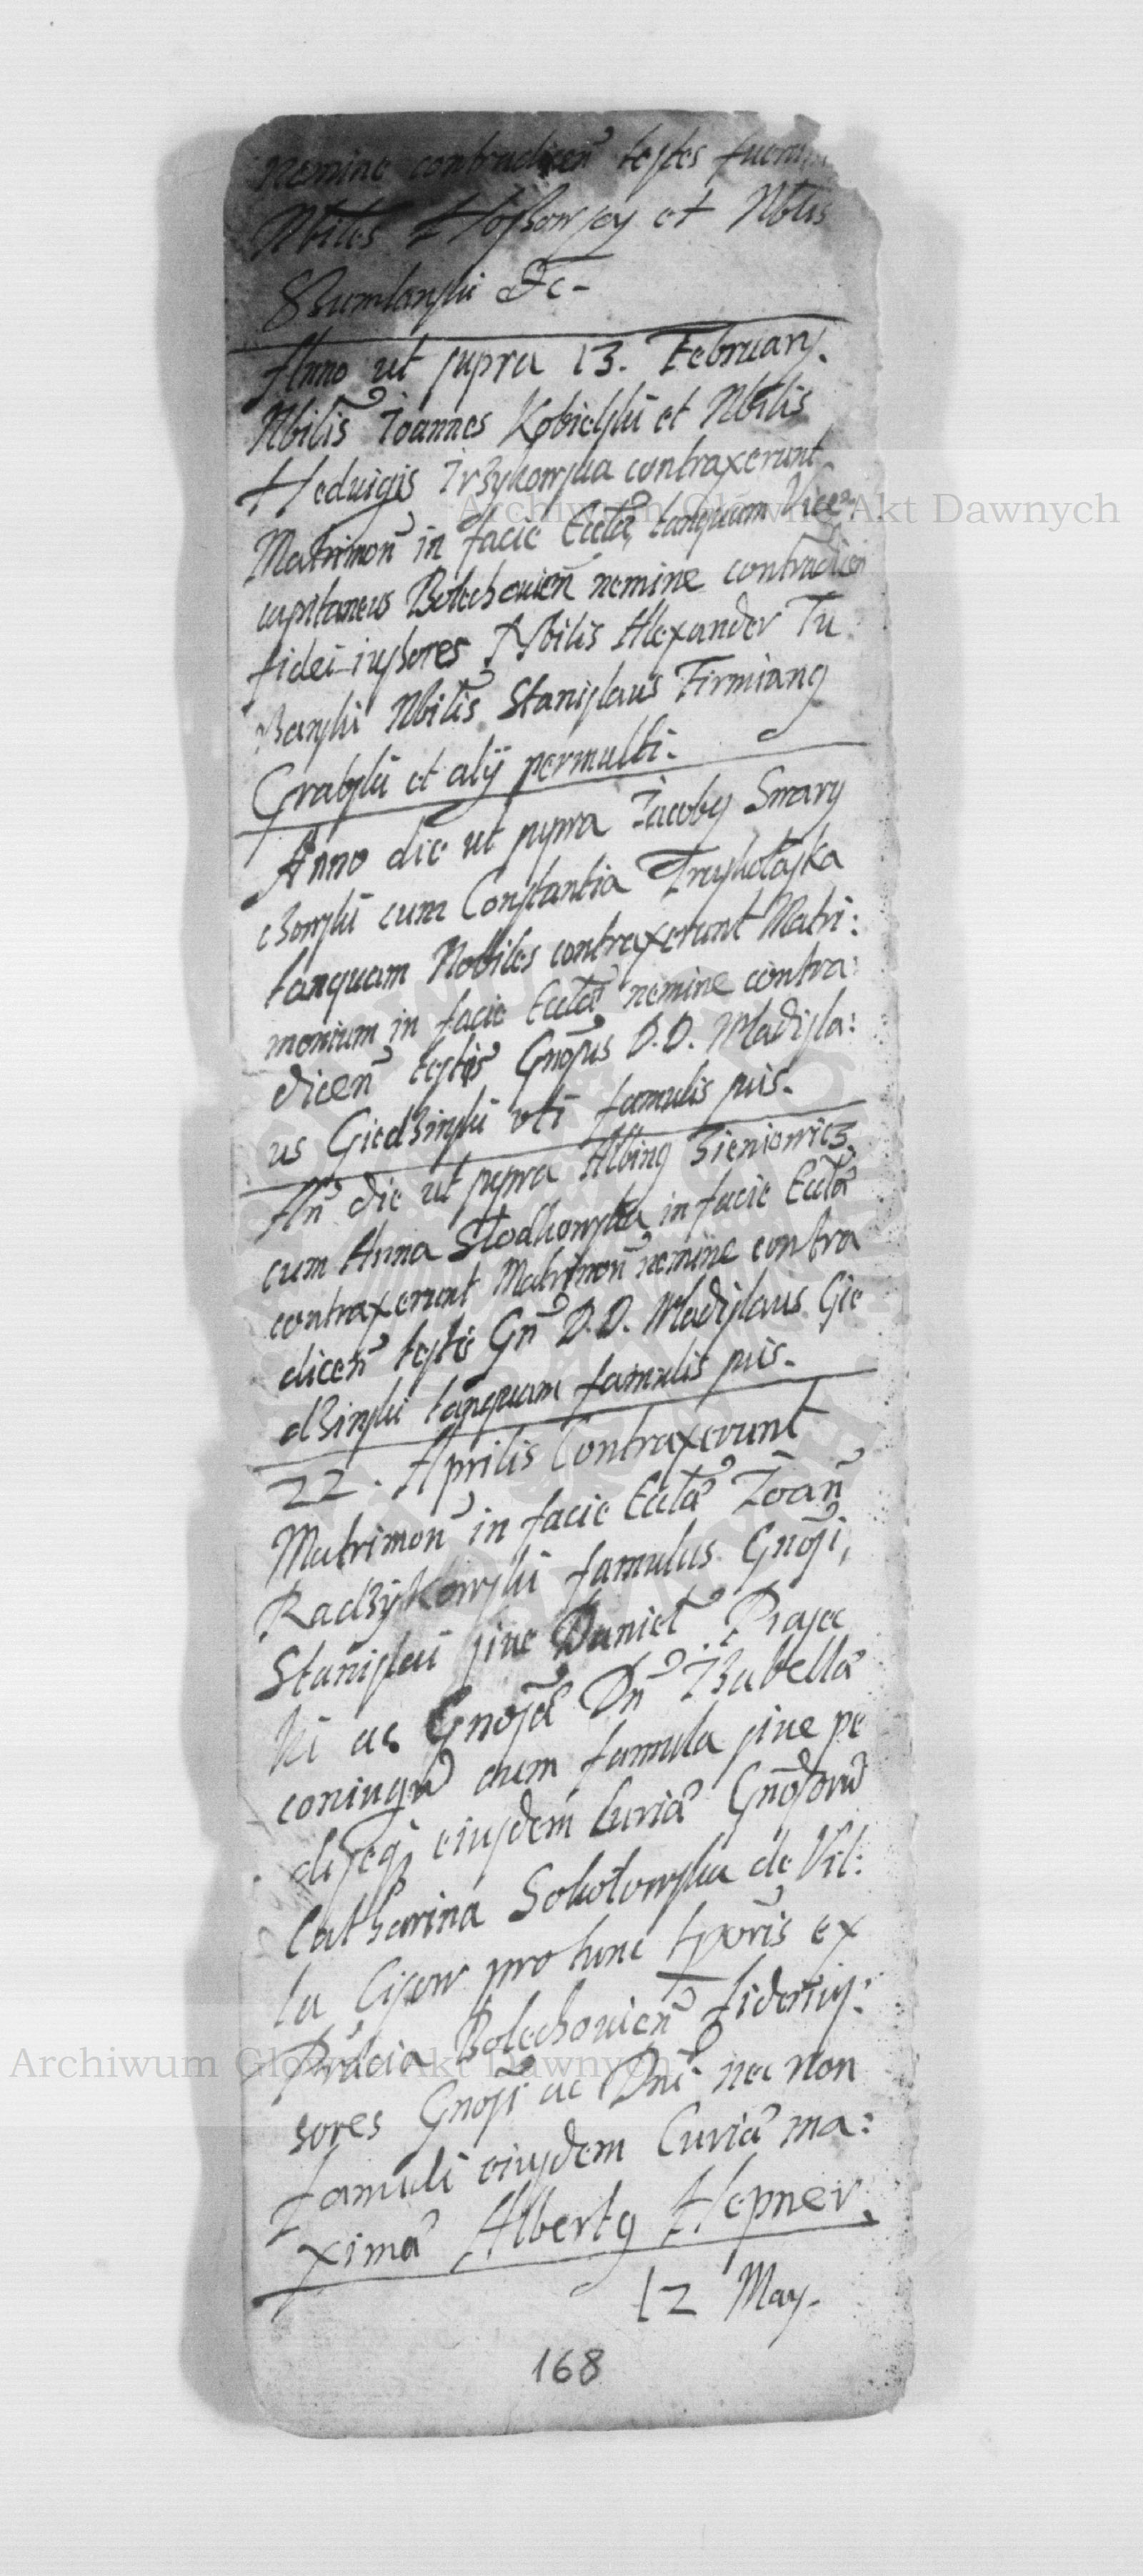 Nemine contradicen̄ testes fuerunt
Nbiles Hossowscy et Nblis
Szumlanski Etc-
Anno ut supra 13. February.
Nbilis Joannes Kobielski et Nbilis
Hedvigis Irzykowska contraxerunt
Matrimon̄ in facie Eccla, tanquam Vice-
capitaneus Bolechovien̄ nemine contradicen
fidei-iussores Nbilis Alexander Tu
Banski Nbilis Stanislaus Firmiang
Grabski et alÿ permulti.
Anno die ut supra Jacoby Swary
czowski cum Constantia Truskolaska
tanquam Nobiles contraxerunt Matri:
monium in facie Eccla nemine contra:
dicen̄ testis Gnosus D.D. Wladisla:
us Giedzinski uti famulis suis.
An̄ die ut supra Albing Zieniowicz
cum Anna Słodkowska in facie Eccla
contraxerunt Matrimon̄ nemine contra
dicen̄ testis Gn̄ D.D. Wladislaus Gie
dzinski tanquam famulis suis.
22. Aprilis Contraxerunt
Matrimon̄ in facie Eccla Joan̄
Radzÿkowski famulus Gnosi,
Stanislai sive Daniel Prasec
ki ac Gnosa Dn̄ Izabella
coniuga cum famula sive pe
disseq ejusdem Curia Gnosorū
Catharina Sokołowska de Vil:
la Cisow pro tunc tporis ex
Prafcia Bolechovien̄ fideriuss:
sores Gnosi ac Dni nec non
famuli eiusdem Curia ma:
xima Albertg Hepner.
12 May.
168
Archiwum Główne Akt Dawnych
Archiwum Główne Akt Dawnych